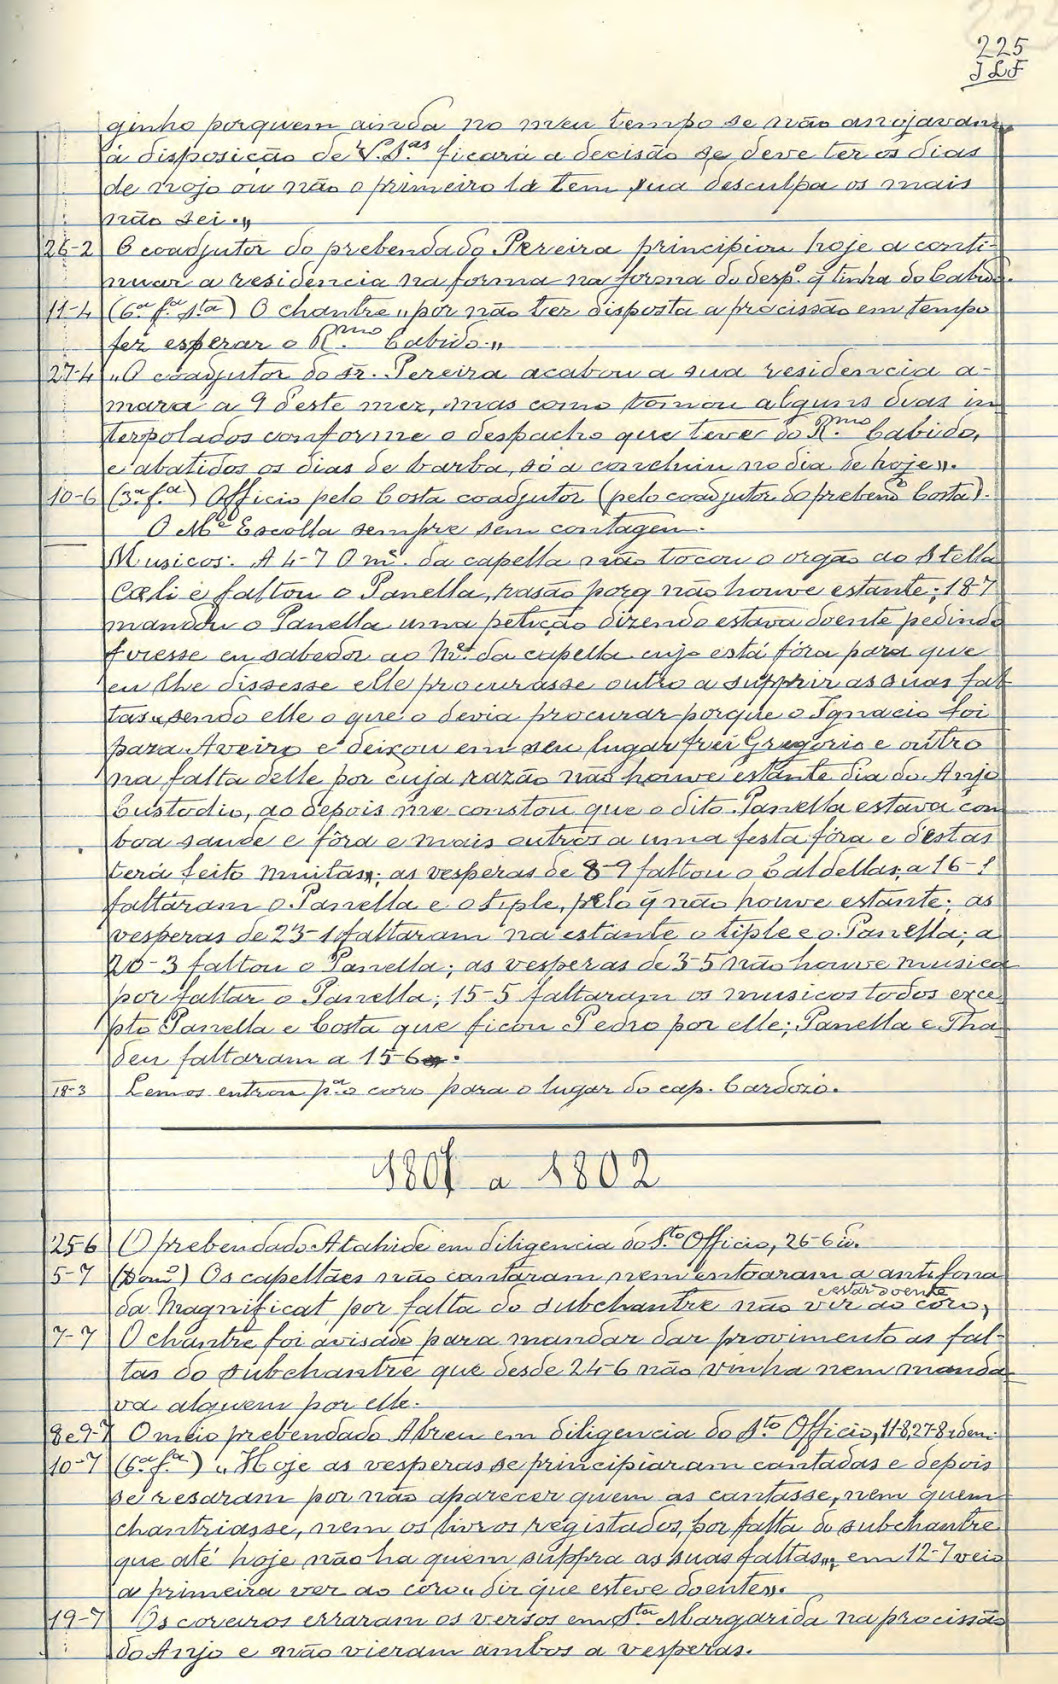 225
JLF
ginho porquem ainda no meu tempo se não anojavam,
á disposição de V. S.as ficará a decisão se deve ter os dias
de nojo ou não o primeiro lá tem sua desculpa os mais
não sei.„
26-2 O coadjutor do prebendado Pereira principiou hoje a conti-
nuar a residencia na forma na forma do desp.o q̃ tinha do Cabido.
11-4 (6.a f.a s.ta) O chantre „por não ter disposta a procissão em tempo
fez esperar o R.mo Cabido.„
27-4 „O coadjutor do sr. Pereira acabou a sua residencia a-
mara a 9 deste mez, mas como tomou alguns dias in
terpolados conforme o despacho que teve do R.mo Cabido,
e abatidos os dias de barba, só a concluiu no dia de hoje„.
10-6 (3.a f.a) Officio pelo Costa coadjutor (pelo coadjutor do prebend.o Costa).
O M.e Escolla sempre sem contagem.
Musicos: A 4-7 O m.e da capella não tocou o orgão ao Stella
Cœli e faltou o Panella, rasão porq não houve estante; 18-7
mandou o Panella uma petição dizendo estava doente pedindo
fizesse eu sabedor ao M.e da capella cujo está fóra para que
eu lhe dissesse elle procurasse outro a supprir as suas fal
tas„ sendo elle o que o devia procurar porque o Ignacio foi
para Aveiro e deixou em seu lugar frei Gregorio e outro
na falta delle por cuja razão não houve estante dia do Anjo
Custodio, ao depois me constou que o dito Panella estava com
boa saude e fôra e mais outros a uma festa fóra e destas
terá feito muitas„; as vesperas de 8-9 faltou o Caldellas; a 16-1
faltáram o Panella e o tiple, pelo q̃ não houve estante; as
vesperas de 23-1 faltaram na estante o tiple e o Panella; a
20-3 faltou o Panella; as vesperas de 3-5 não houve musica
por faltar o Panella; 15-5 faltaram os musicos todos exce
pto Panella e Costa que ficou Pedro por elle; Panella e Tha
deu faltaram a 15-6.
18-3 Lemos entrou p.a o coro para o lugar do cap. Cardozo.
1801 a 1802
25-6 O prebendado Atahide em diligencia do S.to Officio, 26-6 id.
5-7 (Dom.o) Os capellães não cantaram nem entoaram a antifona
da Magnificat por falta do subchantre estar doente não vir ao côro,
7-7 O chantre foi avisado para mandar dar provimento as fal-
tas do subchantre que desde 24-6 não vinha nem manda
va alguem por elle.
8 e 9-7 O meio prebendado Abreu em diligencia do S.to Officio, 11-8, 27-8 idem.
10-7 (6.a f.a) „Hoje as vesperas se principiaram cantadas e depois
se resaram por não aparecer quem as cantasse, nem quem
chantriasse, nem os livros registados, por falta do subchantre
que até hoje não ha quem suppra as suas faltas„; em 12-7 veio
a primeira vez ao coro„ diz que esteve doente„.
19-7 Os coreiros erraram os versos em S.ta Margarida na procissão
do Anjo e não vieram ambos a vesperas.